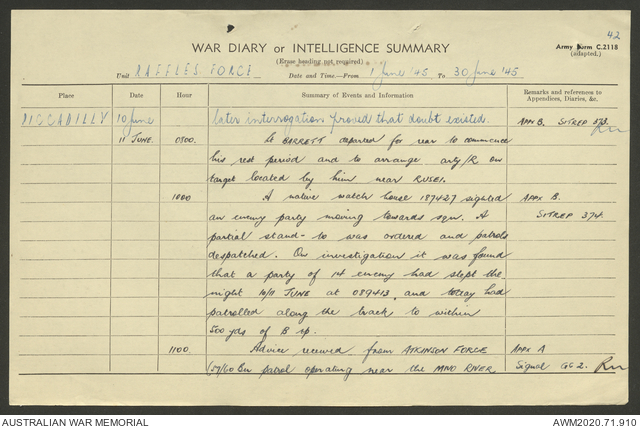 42
WAR DIARY or INTELLIGENCE SUMMARY
Army Form C.2118
(adapted.)
(Erase heading not required)
Unit RAFFLES FORCE Date and Time—From 1 June '45 To 30 June '45
Place Date Hour Summary of Events and Information Remarks and references to Appendices, Diaries, &c.
PICCADILLY 10 June later interrogation proved that doubt existed. APPX B. SITREP 373.
11 JUNE. 0800. Lt BARRETT departed for rear to commence
his rest period and to arrange arty/R on
target located by him near RUSEI.
1000 A native watch house 187427 sighted APPX B.
an enemy party moving towards sqn. A SITREP 374.
partial stand-to was ordered and patrols
despatched. On investigation it was found
that a party of 14 enemy had slept the
night 10/11 JUNE at 089413, and today had
patrolled along the track to within
500 yds of B sp.
1100. Advice received from ATKINSON FORCE APPX A
(57/60 Bn patrol operating near the MIVO RIVER Signal GG 2.
AUSTRALIAN WAR MEMORIAL AWM2020.71.910